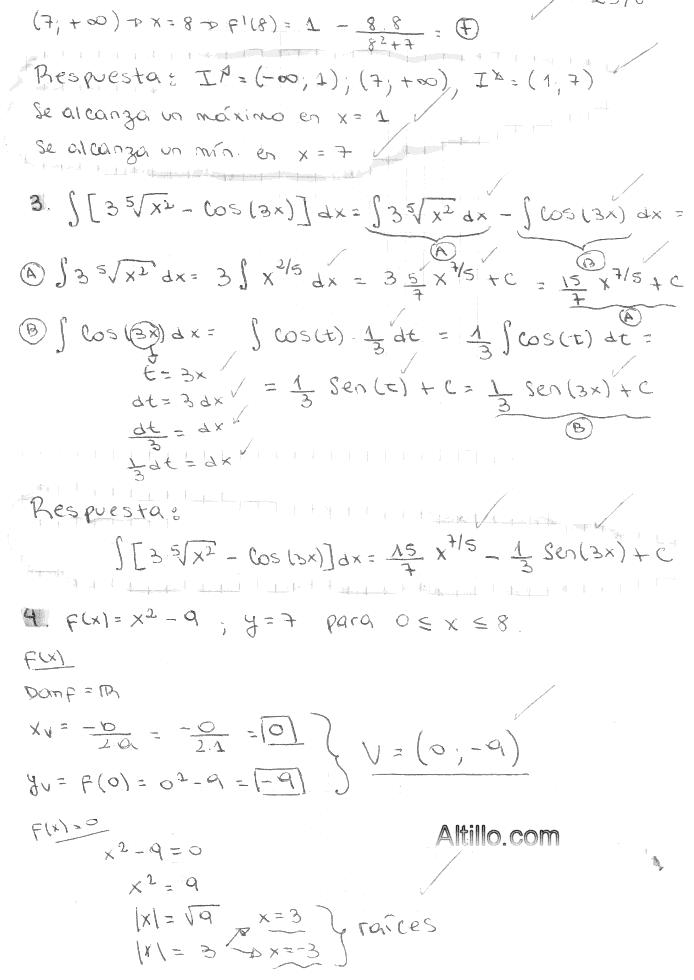 (7; +∞) → x = 8 → f'(8) = 1 - (8.8)/(8²+7) = (+)
Respuesta: I↗ = (-∞; 1); (7; +∞), I↘ = (1, 7)
Se alcanza un máximo en x = 1
Se alcanza un mín. en x = 7
3. ∫[3 ⁵√x² - Cos(3x)] dx = ∫3 ⁵√x² dx - ∫cos(3x) dx =
(A) (B)
(A) ∫3 ⁵√x² dx = 3∫ x^(2/5) dx = 3 5/7 x^(7/5) + C = 15/7 x^(7/5) + C
(A)
(B) ∫ Cos(3x) dx = ∫ cos(t) . 1/3 dt = 1/3 ∫cos(t) dt =
t = 3x
dt = 3 dx = 1/3 Sen(t) + C = 1/3 Sen(3x) + C
dt/3 = dx (B)
1/3 dt = dx
Respuesta:
∫[3 ⁵√x² - Cos(3x)] dx = 15/7 x^(7/5) - 1/3 Sen(3x) + C
4. f(x) = x² - 9 ; y = 7 para 0 ≤ x ≤ 8.
F(x)
Domf = ℝ
Xv = -b/2.a = -0/2.1 = 0
V = (0; -9)
Yv = f(0) = 0² - 9 = -9
F(x) = 0
Altillo.com
x² - 9 = 0
x² = 9
|x| = √9 x = 3
raíces
|x| = 3 x = -3